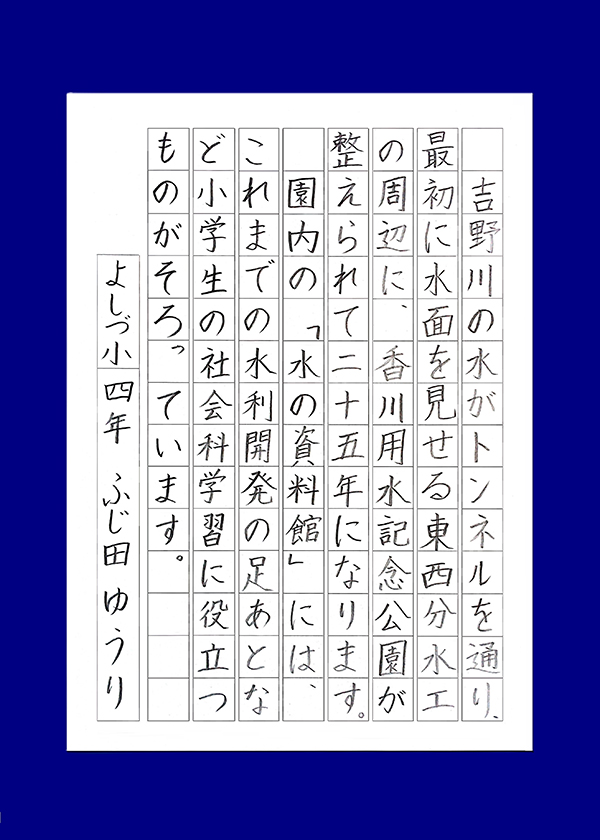 吉野川の水がトンネルを通り、
最初に水面を見せる東西分水工
の周辺に、香川用水記念公園が
整えられて二十五年になります。
　園内の「水の資料館」には、
これまでの水利開発の足あとな
ど小学生の社会科学習に役立つ
ものがそろっています。
よしづ小四年　ふじ田ゆうり